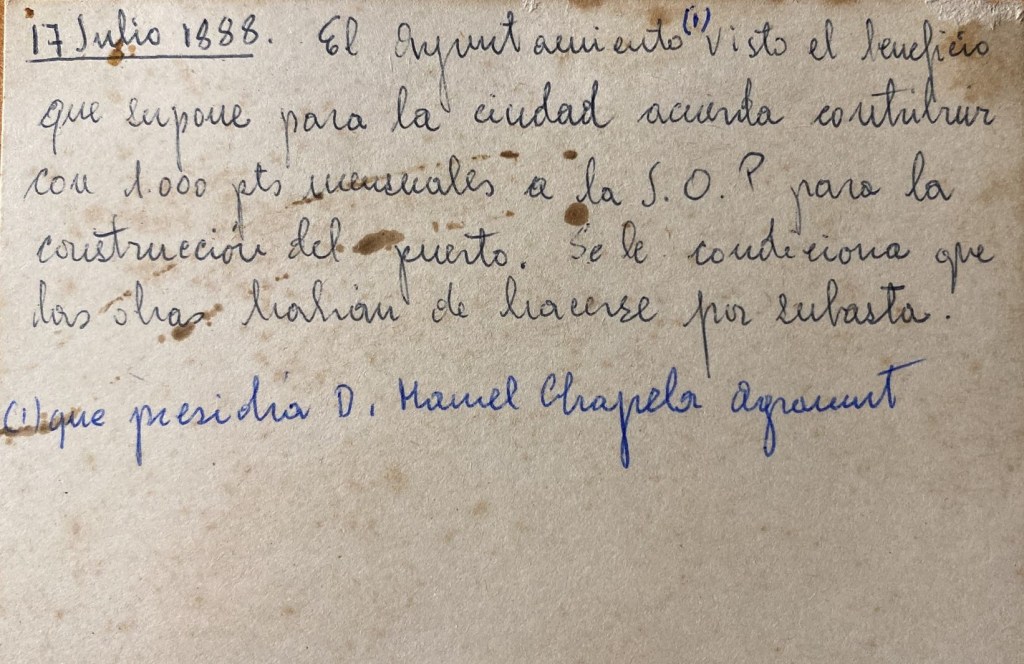 17 Julio 1888. El Ayuntamiento (1) Visto el beneficio
que supone para la ciudad acuerda contribuir
con 1.000 pts mensuales a la S.O.P para la
construcción del puerto. Se le condiciona que
las obras habían de hacerse por subasta.
(1) que presidía D. Manuel Chapela Agramunt